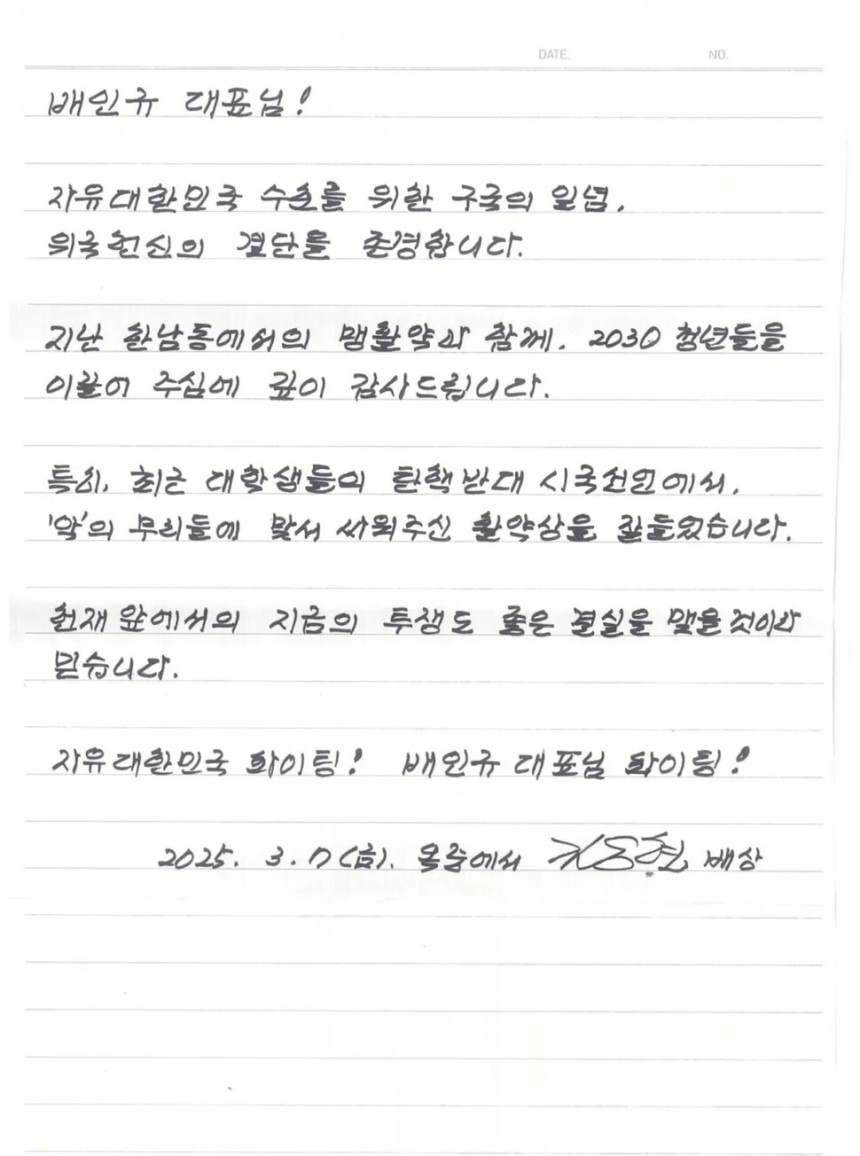 DATE. NO.
배인규 대표님!
자유대한민국 수호를 위한 구국의 일념,
위국헌신의 결단을 존경합니다.
지난 한남동에서의 맹활약과 함께, 2030 청년들을
이끌어 주심에 깊이 감사드립니다.
특히, 최근 대학생들의 탄핵반대 시국선언에서,
'악'의 무리들에 맞서 싸워주신 활약상을 잘들었습니다.
헌재 앞에서의 지금의 투쟁도 좋은 결실을 맺을것이라
믿습니다.
자유대한민국 화이팅! 배인규 대표님 화이팅!
2025. 3. 7(금). 옥중에서 김용현 배상